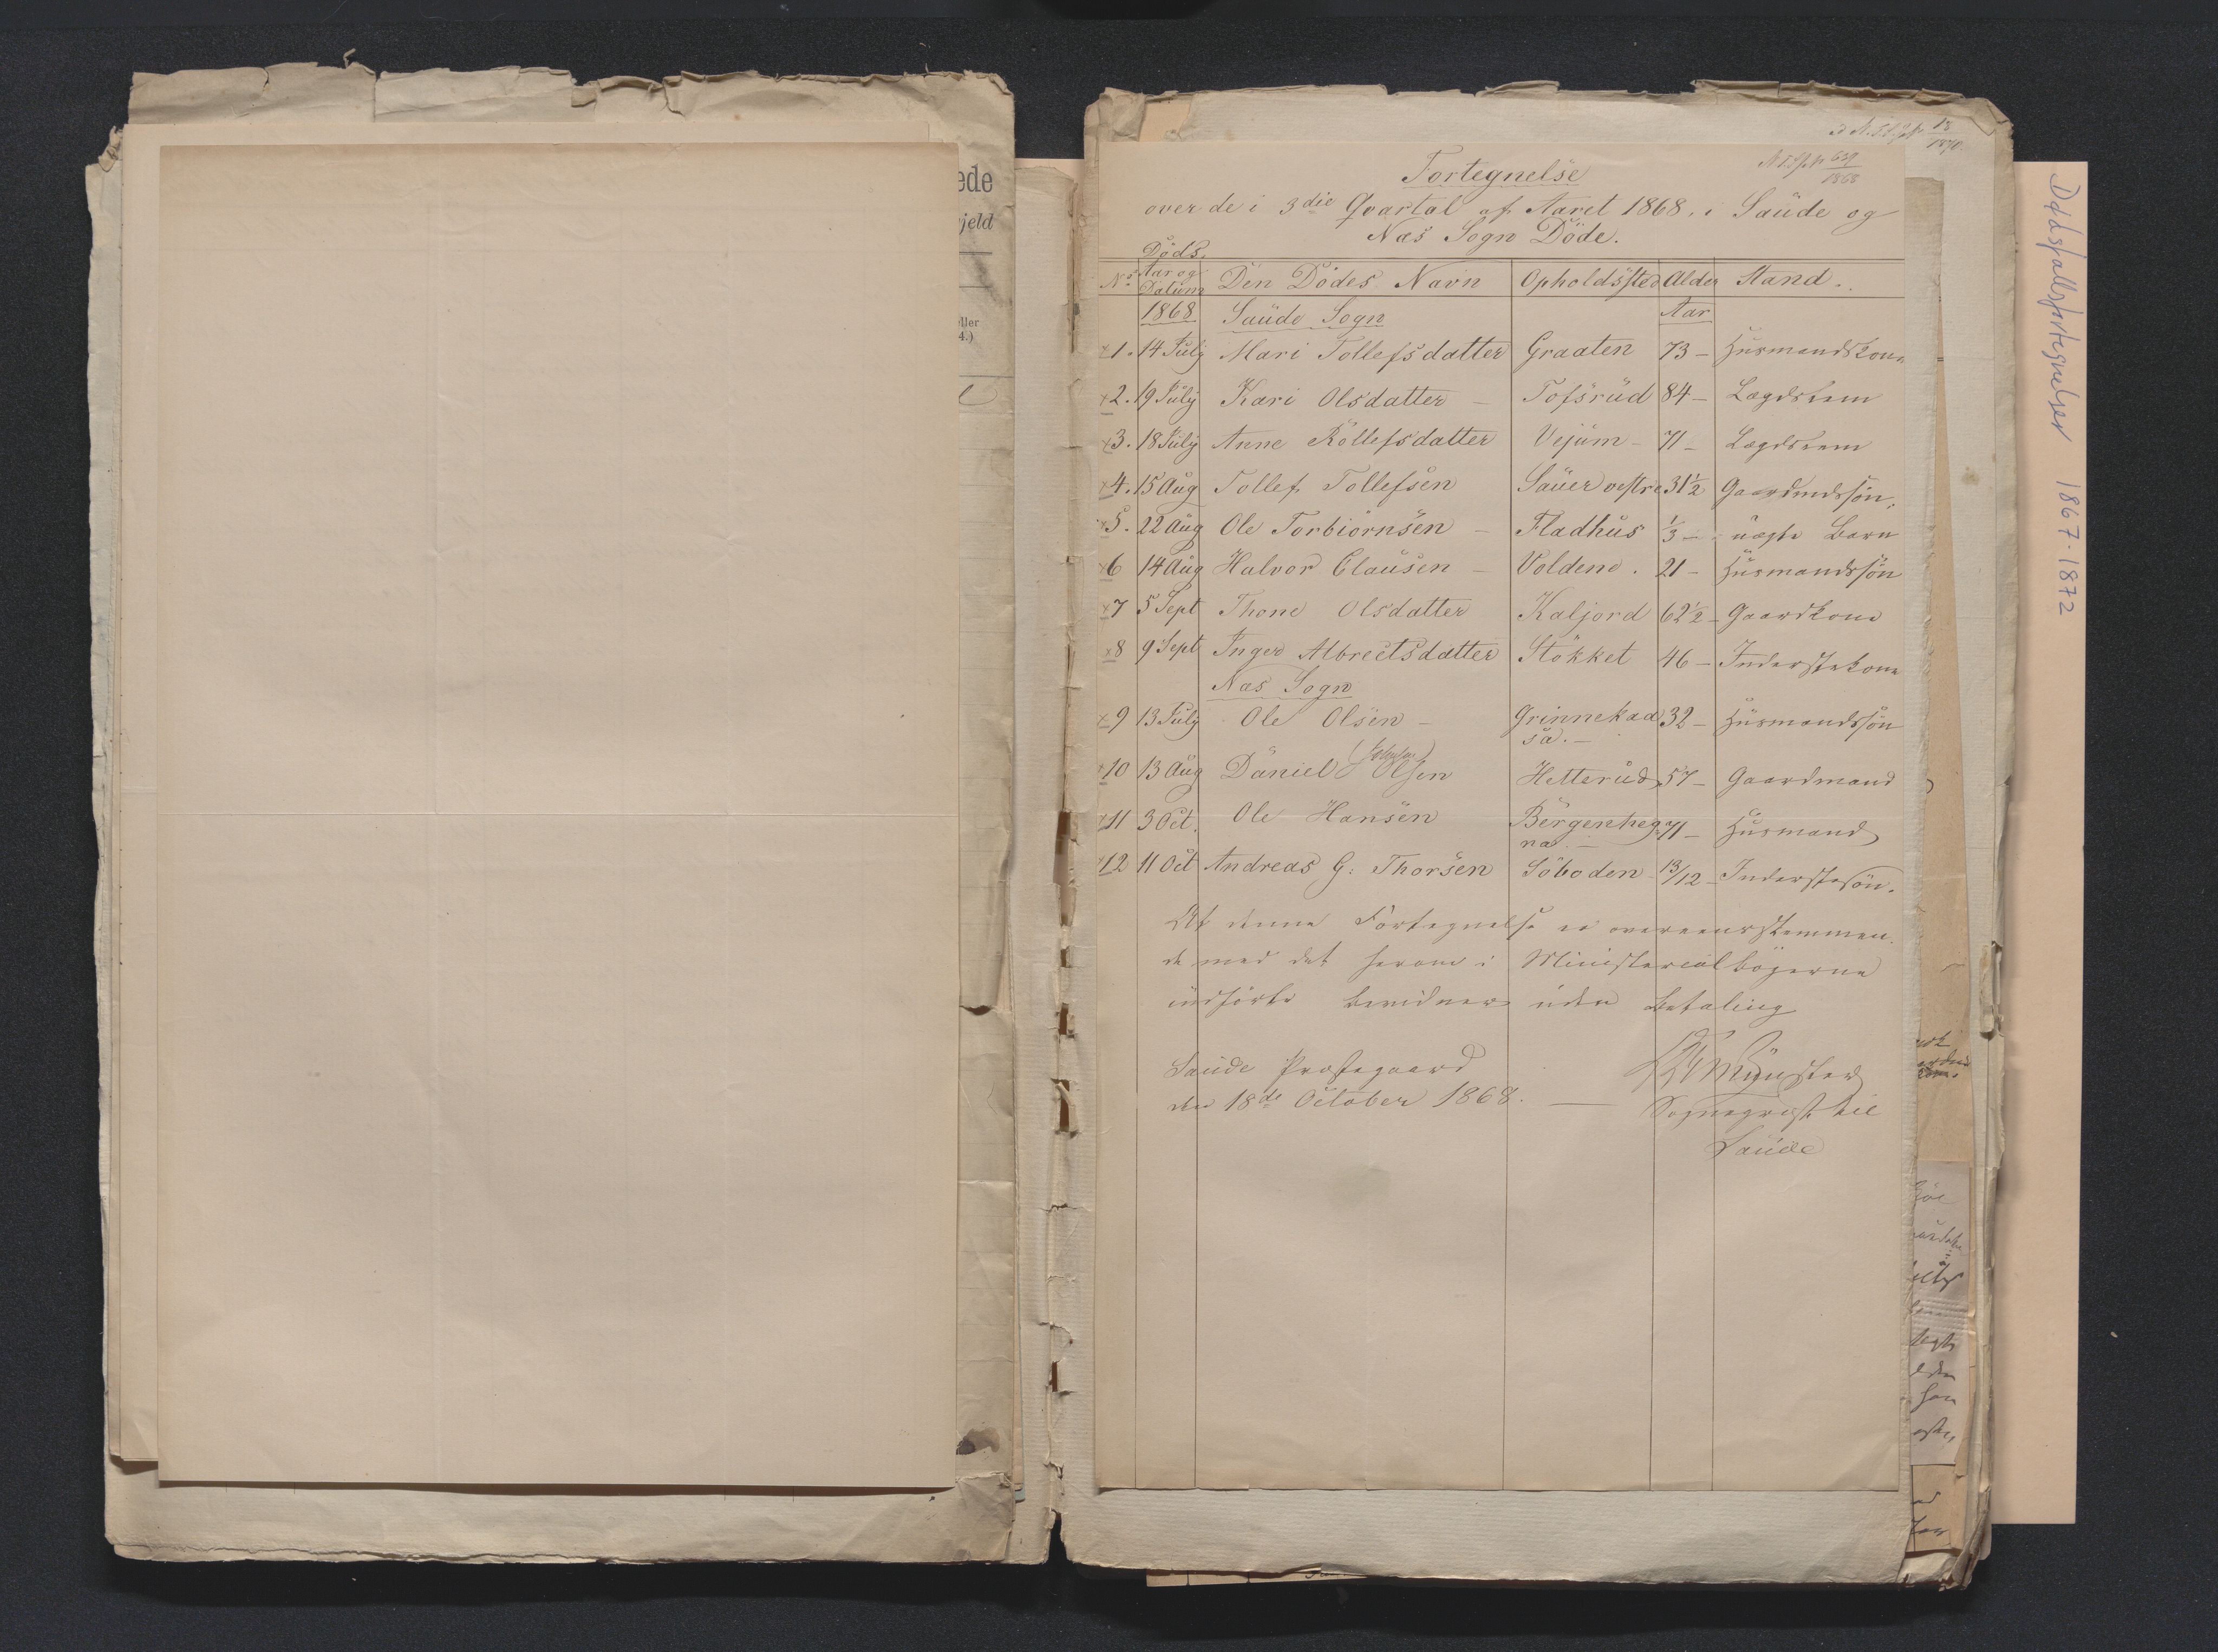 ede
jeld
ller
4.)
18
1870
639
1868
Fortegnelse
over de i 3die Qvartal af Aaret 1868, i Saude og
Næs Sogn Döde.
No Döds Aar og Datum Den Dödes Navn Opholdssted Alder Stand.
1868 Saude Sogn Aar
x1. 14 July Mari Tollefsdatter Graaten 73 – Huusmandskone
x2. 19 July Kari Olsdatter – Tofsrud 84 – Lægdslem
x3. 18 July Anne Röllefsdatter Vejum – 71 – Lægdslem
x4. 15 Aug Tollef Tollefsen Sauer vestre 31½ Gaardmdssön,
x5. 22 Aug Ole Torbiörnsen – Fladhus ⅓ – uægte Barn
x6 14 Aug Halvor Clausen – Voldene. 21 – Huusmandssön
x7 5 Sept Thone Olsdatter Kaljord 62½ – Gaardkone
x8 9 Sept Inger Albrectsdatter Stökket 46 – Inderstekone
Næs Sogn
x9 13 July Ole Olsen – Grinnekaasa. – 32 – Huusmandssön
x10 13 Aug Daniel Olsen Hetterud 57 – Gaardmand
x11 3 Oct. Ole Hansen Bergenhegna. – 71 – Huusmand
x12 11 Oct Andreas G. Thorsen Söboden – 13/12 – Inderstesön.
At denne Fortegnelse er overeensstemmen
de med det herom i Ministerialbögerne
indförte bevidner uden Betaling
Saude Præstegaard
den 18de October 1868. — Münster
Sognepræst til
Saude
Dødsfallsfortegnelser 1867-1872